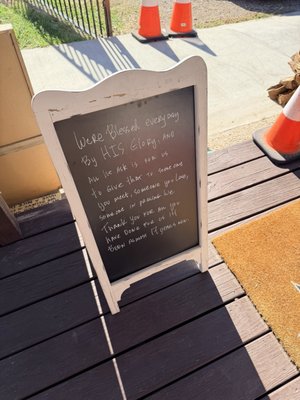 We're Blessed everyday
By HIS Glory. And
All HE ask is for us
to Give that to some one
you meet, someone you love,
someone in passing life.
Thank you for all you
have Done for us it's
Been almost 17 years now.